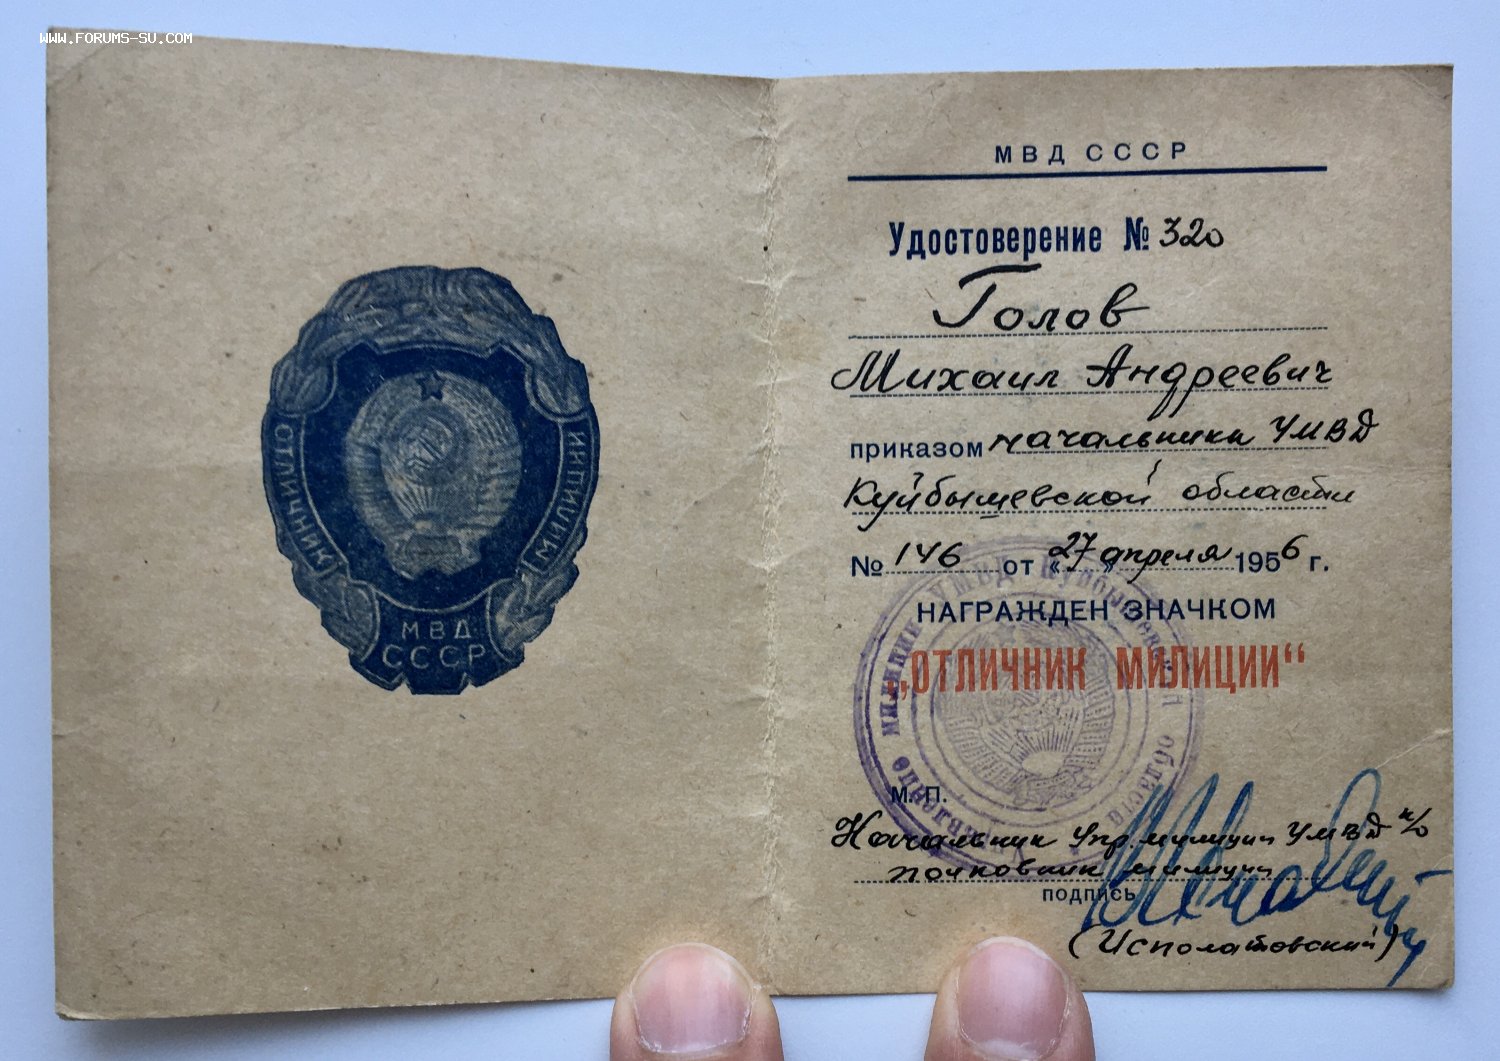 WWW.FORUMS-SU.COM
ОТЛИЧНИК МИЛИЦИИ
МВД
СССР
МВД СССР
Удостоверение № 320
Голов
Михаил Андреевич
приказом начальника УМВД
Куйбышевской области
№ 146 от «27» апреля 1956 г.
НАГРАЖДЕН ЗНАЧКОМ
„ОТЛИЧНИК МИЛИЦИИ“
Управление милиции УМВД Куйбышевской области
М. П.
Начальник Упр. милиции УМВД к/о
полковник милиции
подпись
(Исполатовский)